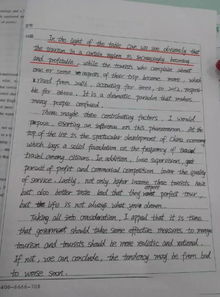 In the light of the table one we are obviously that
the tourism in a certain region is increasingly booming
and profitable, while the tourists who complain about
one or some respects of their trip become more, which
arised from % , accounting for item, to % , respec
tive for others. It is a dramatic paradox that makes
many people confused.
There maybe state contributing factors, I would
propose exerting an influence on this phenomenon. At the
top of the list is the spectacular development of China economy
which lays a solid foundation on the frequency of
travel among citizens. In addition, lose supervision,
pursuit of profit and commercial competition lower the quality
of service. Lastly, not only higher income these tourists have
but also better taste lead that they want perfect tour,
but the life is not always what you're
Taking all into consideration, I appeal that it is time
that government should take some effective measures to manage
tourism and tourists should be more realistic and rational.
If not, we can conclude, the tendency may be from bad
to worse soon.
400-6666-